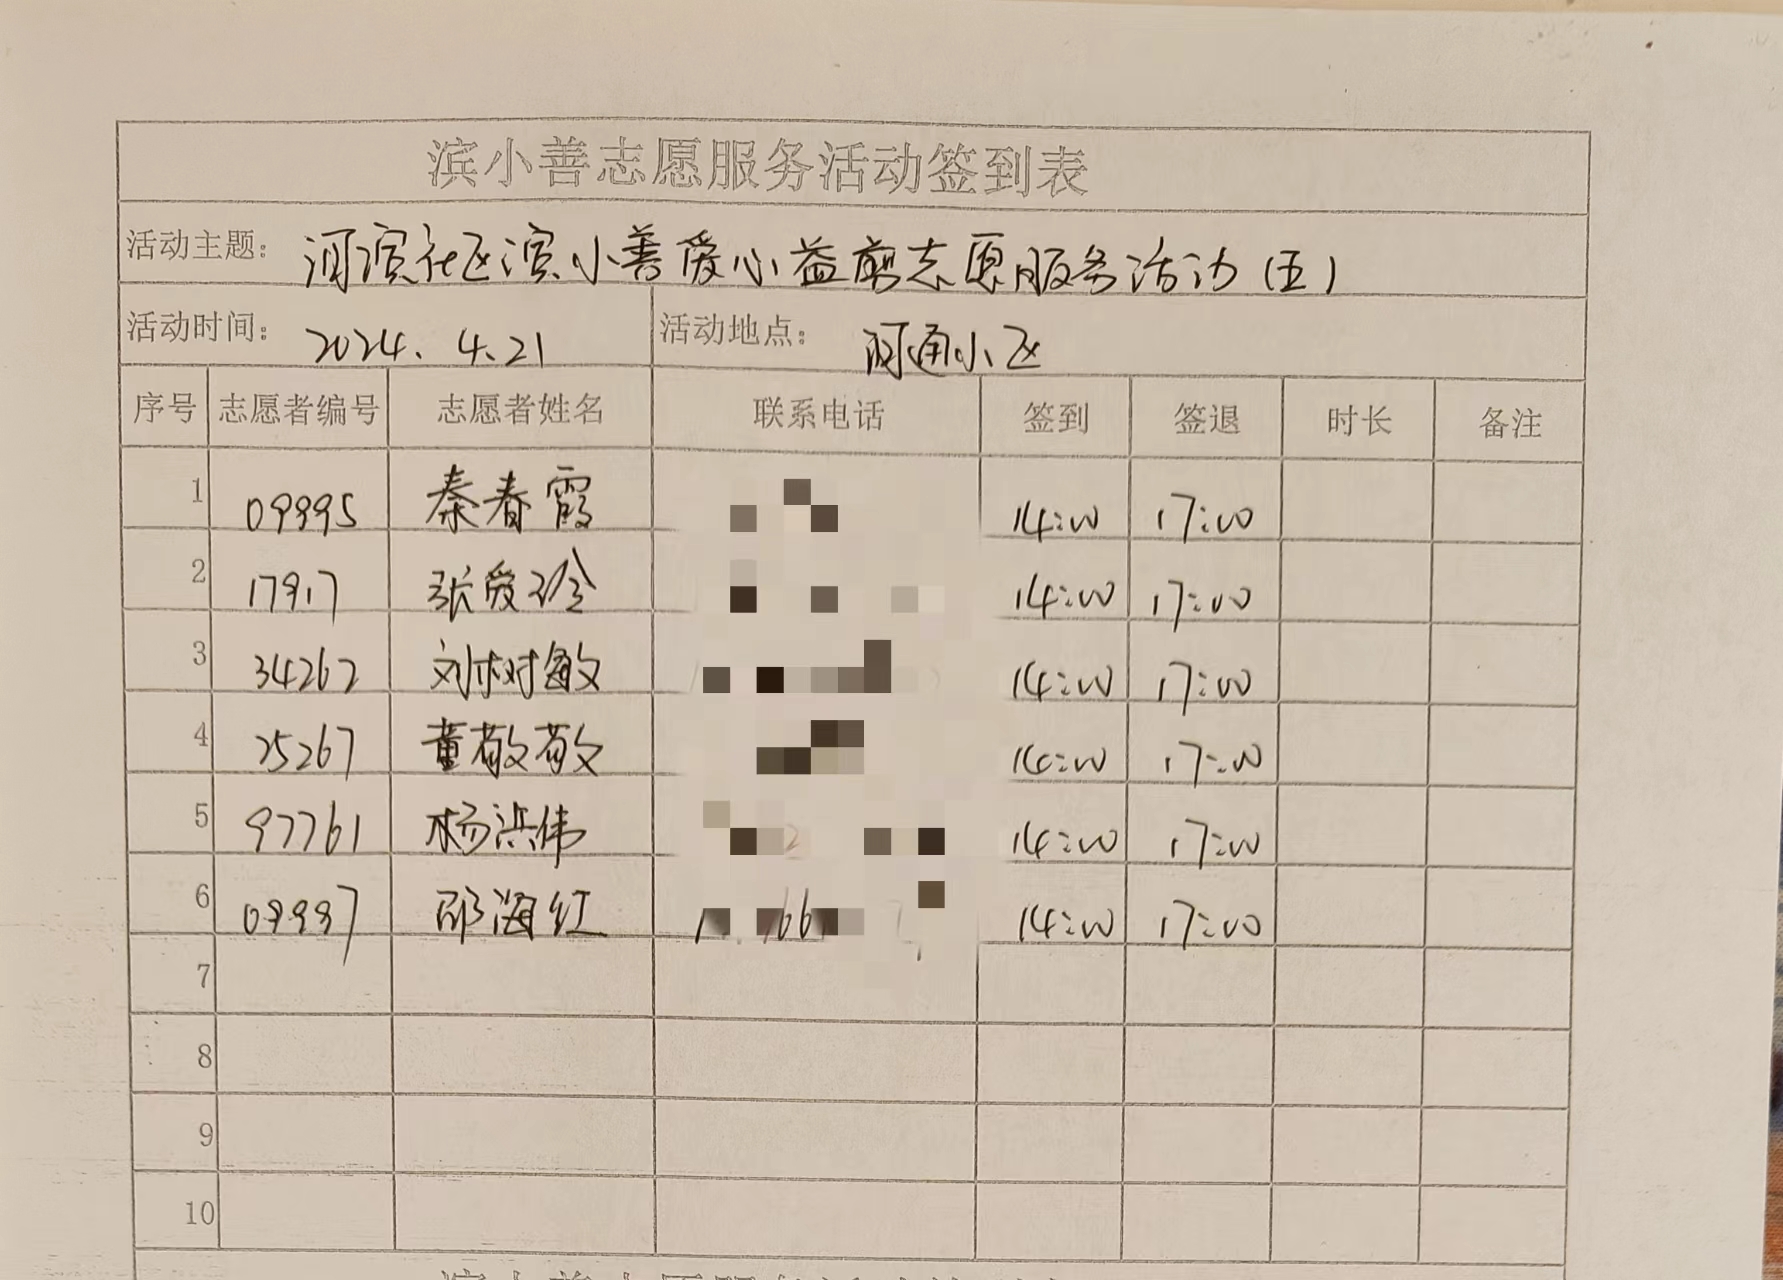 滨小善志愿服务活动签到表
活动主题: 河滨社区滨小善爱心益剪志愿服务活动(五)
活动时间: 2024.4.21 活动地点: 河通小区
序号 志愿者编号 志愿者姓名 联系电话 签到 签退 时长 备注
1 09995 秦春霞 14:00 17:00
2 17917 张爱珍 14:00 17:00
3 34262 刘树敏 14:00 17:00
4 25267 董敬敬 14:00 17:00
5 97761 杨洪伟 14:00 17:00
6 09997 邵海红 14:00 17:00
7
8
9
10
滨小善志愿服务活动签到表